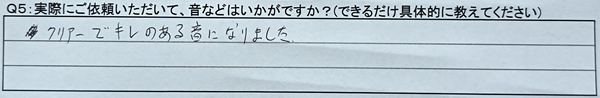 Q5:実際にご依頼いただいて、音などはいかがですか?(できるだけ具体的に教えてください)
クリアーでキレのある音になりました